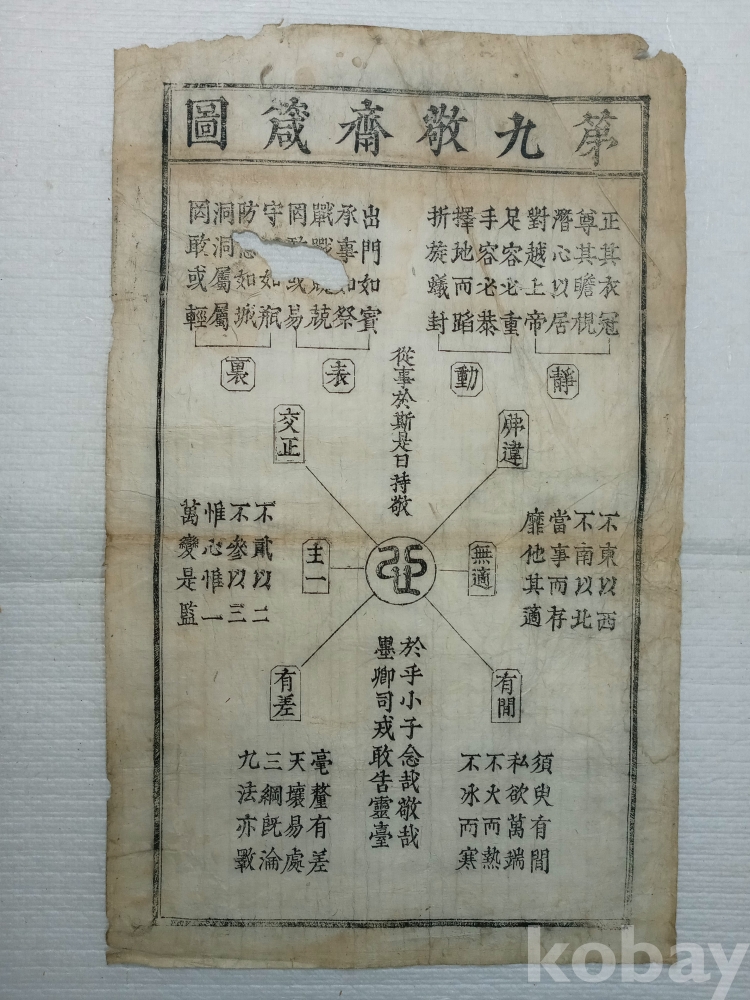 第九敬齋箴圖
正其衣冠
尊其瞻視
潛心以居
對越上帝
足容必重
手容必恭
擇地而蹈
折旋蟻封
出門如賓
承事如祭
戰戰兢兢
罔敢或易
守如瓶
防如城
洞洞屬屬
罔敢或輕
靜
動
表
裏
從事於斯是曰持敬
弗違
交正
不東以西
不南以北
當事而存
靡他其適
無適
心
主一
不貳以二
不參以三
惟心惟一
萬變是監
有間
有差
於乎小子念哉敬哉
墨卿司戒敢告靈臺
須臾有間
私欲萬端
不火而熱
不冰而寒
毫釐有差
天壤易處
三綱既淪
九法亦斁
kobay